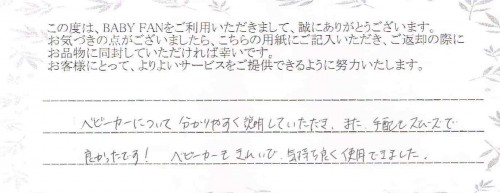 この度は、BABY FANをご利用いただきまして、誠にありがとうございます。
お気づきの点がございましたら、こちらの用紙にご記入いただき、ご返却の際に
お品物に同封していただければ幸いです。
お客様にとって、よりよいサービスをご提供できるように努力いたします。
ベビーカーについて 分かりやすく説明していただき、また、手配もスムーズで
良かったです! ベビーカーもきれいで、気持ち良く使用できました。